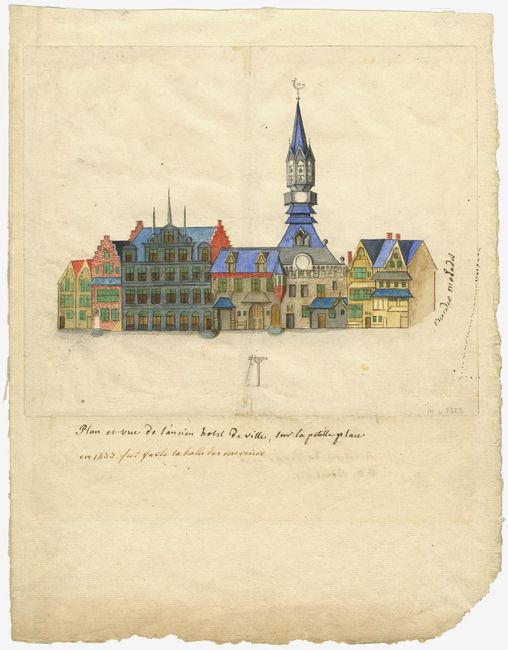 rue des malades
Plan et vue de l'ancien hotel de ville, sur la petite place
en 1833. fut faite la halle des